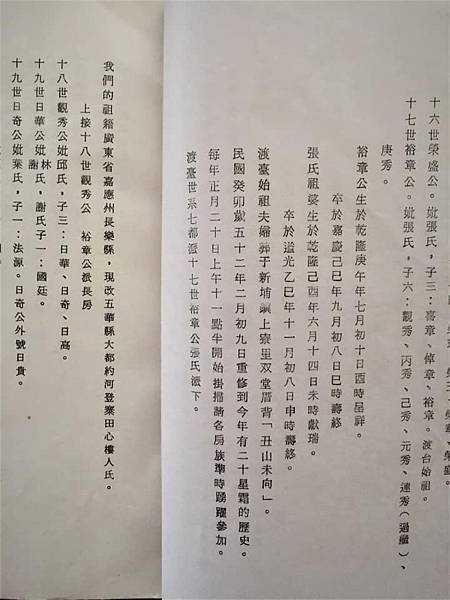 十六世榮盛公。妣張氏，子三：喜章、倬章、裕章。渡台始祖。
十七世裕章公。妣張氏，子六：觀秀、丙秀、己秀、元秀、連秀（過繼）、
庚秀。
裕章公生於乾隆庚午年七月初十日酉時呈祥。
卒於嘉慶己巳年九月初八日巳時壽終。
張氏祖婆生於乾隆己酉年六月十四日未時獻瑞。
卒於道光乙巳年十一月初八日申時壽終。
渡臺始祖夫婦葬于新埔鎮上寮里双堂厝背「丑山未向」。
民國癸卯歲五十二年二月初九日重修到今年有二十星霜的歷史。
每年正月二十日上午十一點半開始掛掃請各房族準時踴躍參加。
渡臺世系七都派十七世裕章公張氏派下。
我們的祖籍廣東省嘉應州長樂縣，現改五華縣大都約河登業田心樓人氏。
上接十八世觀秀公　裕章公派長房
十八世觀秀公妣邱氏，子三：日華、日奇、日高。
十九世日華公妣林謝氏，謝氏子一：國廷。
十九世日奇公妣葉氏，子一：法源。日奇公外號日貴。